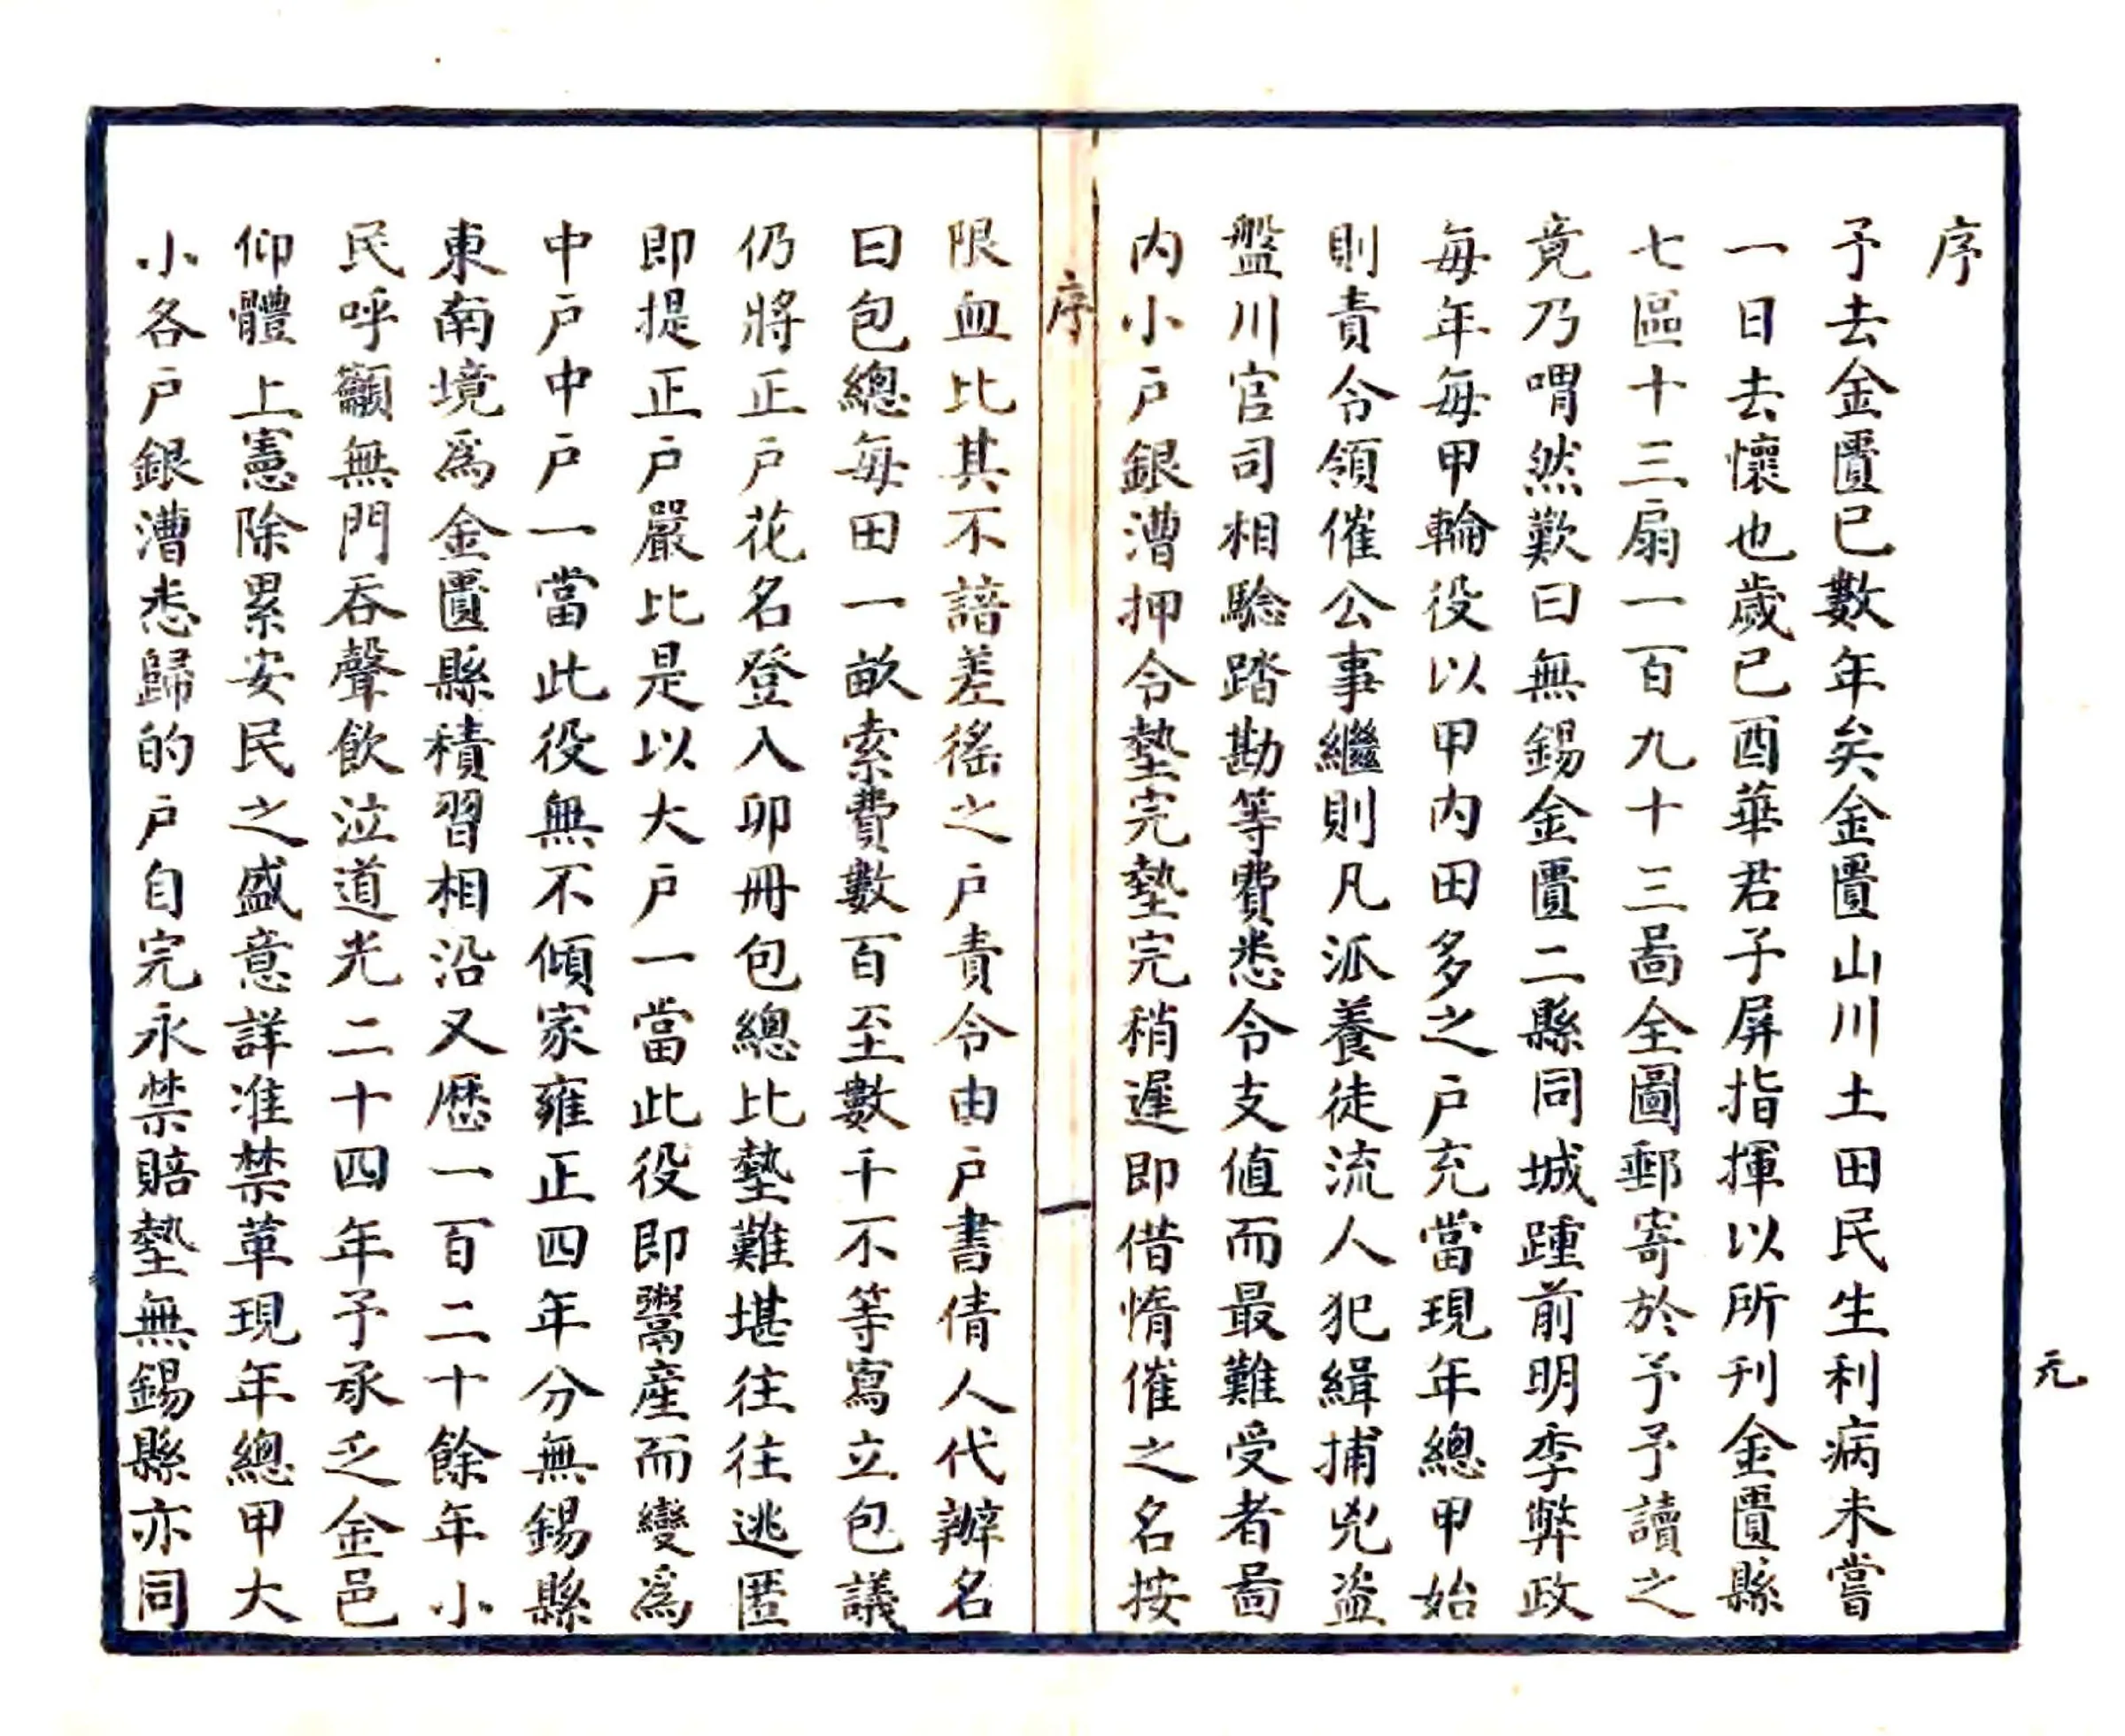 序
予去金匱已數年矣金匱山川土田民生利病未嘗
一日去懷也歲己酉華君子屏指揮以所刊金匱縣
七區十三扇一百九十三啚全圖郵寄於予予讀之
竟乃喟然歎曰無錫金匱二縣同城踵前明季弊政
每年每甲輪役以甲內田多之戶充當現年總甲始
則責令領催公事繼則凡派養徒流人犯緝捕兇盜
盤川官司相驗踏勘等費悉令支值而最難受者啚
內小戶銀漕押令墊完墊完稍遲即借惰催之名按
限血比其不諳差徭之戶責令由戶書倩人代辦名
曰包總每田一畝索費數百至數千不等寫立包議
仍將正戶花名登入卯冊包總比墊難堪往往逃匿
即提正戶嚴比是以大戶一當此役即鬻產而變為
中戶中戶一當此役無不傾家雍正四年分無錫縣
東南境為金匱縣積習相沿又歷一百二十餘年小
民呼籲無門吞聲飲泣道光二十四年予承乏金邑
仰體上憲除累安民之盛意詳准禁革現年總甲大
小各戶銀漕悉歸的戶自完永禁賠墊無錫縣亦同
序
一
元